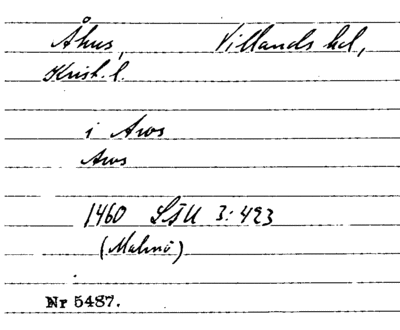 Åhus, Villands hd,
Krist. l.
i Aws
Aws
1460 LSU 3:423
(Malmö)
Nr 5487.